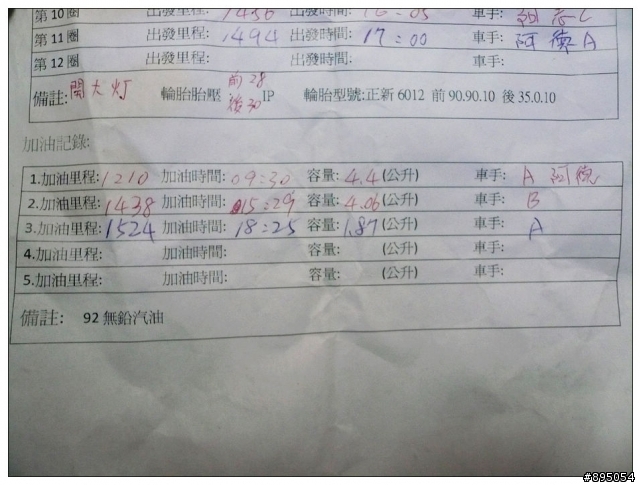 第 10 圈 出發里程: 1436 出發時間: 16:05 車手: C
第 11 圈 出發里程: 1494 出發時間: 17:00 車手: 阿德 A
第 12 圈 出發里程: 出發時間: 車手:
備註: 開大灯 輪胎胎壓 前 28 後 30 IP 輪胎型號:正新 6012 前 90.90.10 後 35.0.10
加油記錄:
1.加油里程: 1210 加油時間: 09:30 容量: 4.4 (公升) 車手: A 阿德
2.加油里程: 1438 加油時間: 15:29 容量: 4.06 (公升) 車手: B
3.加油里程: 1524 加油時間: 18:25 容量: 1.87 (公升) 車手: A
4.加油里程: 加油時間: 容量: (公升) 車手:
5.加油里程: 加油時間: 容量: (公升) 車手:
備註: 92 無鉛汽油
#895054